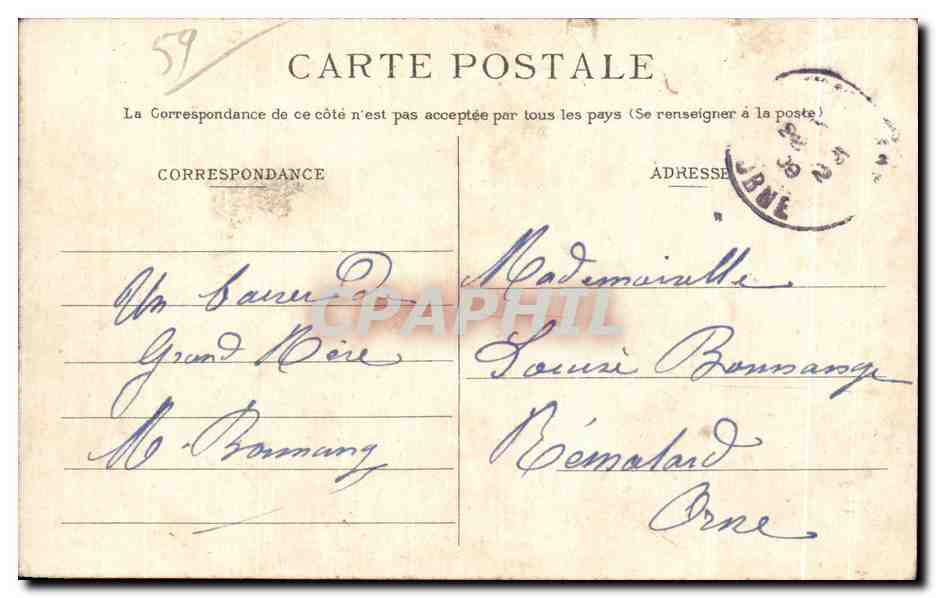 59
CARTE POSTALE
La Correspondance de ce côté n'est pas acceptée par tous les pays (Se renseigner à la poste)
CORRESPONDANCE
ADRESSE
ORNE
Un baiser de
Grand Mère
M. Bonnang
Mademoiselle
Louise Bonnange
Rémalard
Orne
CPAPHIL